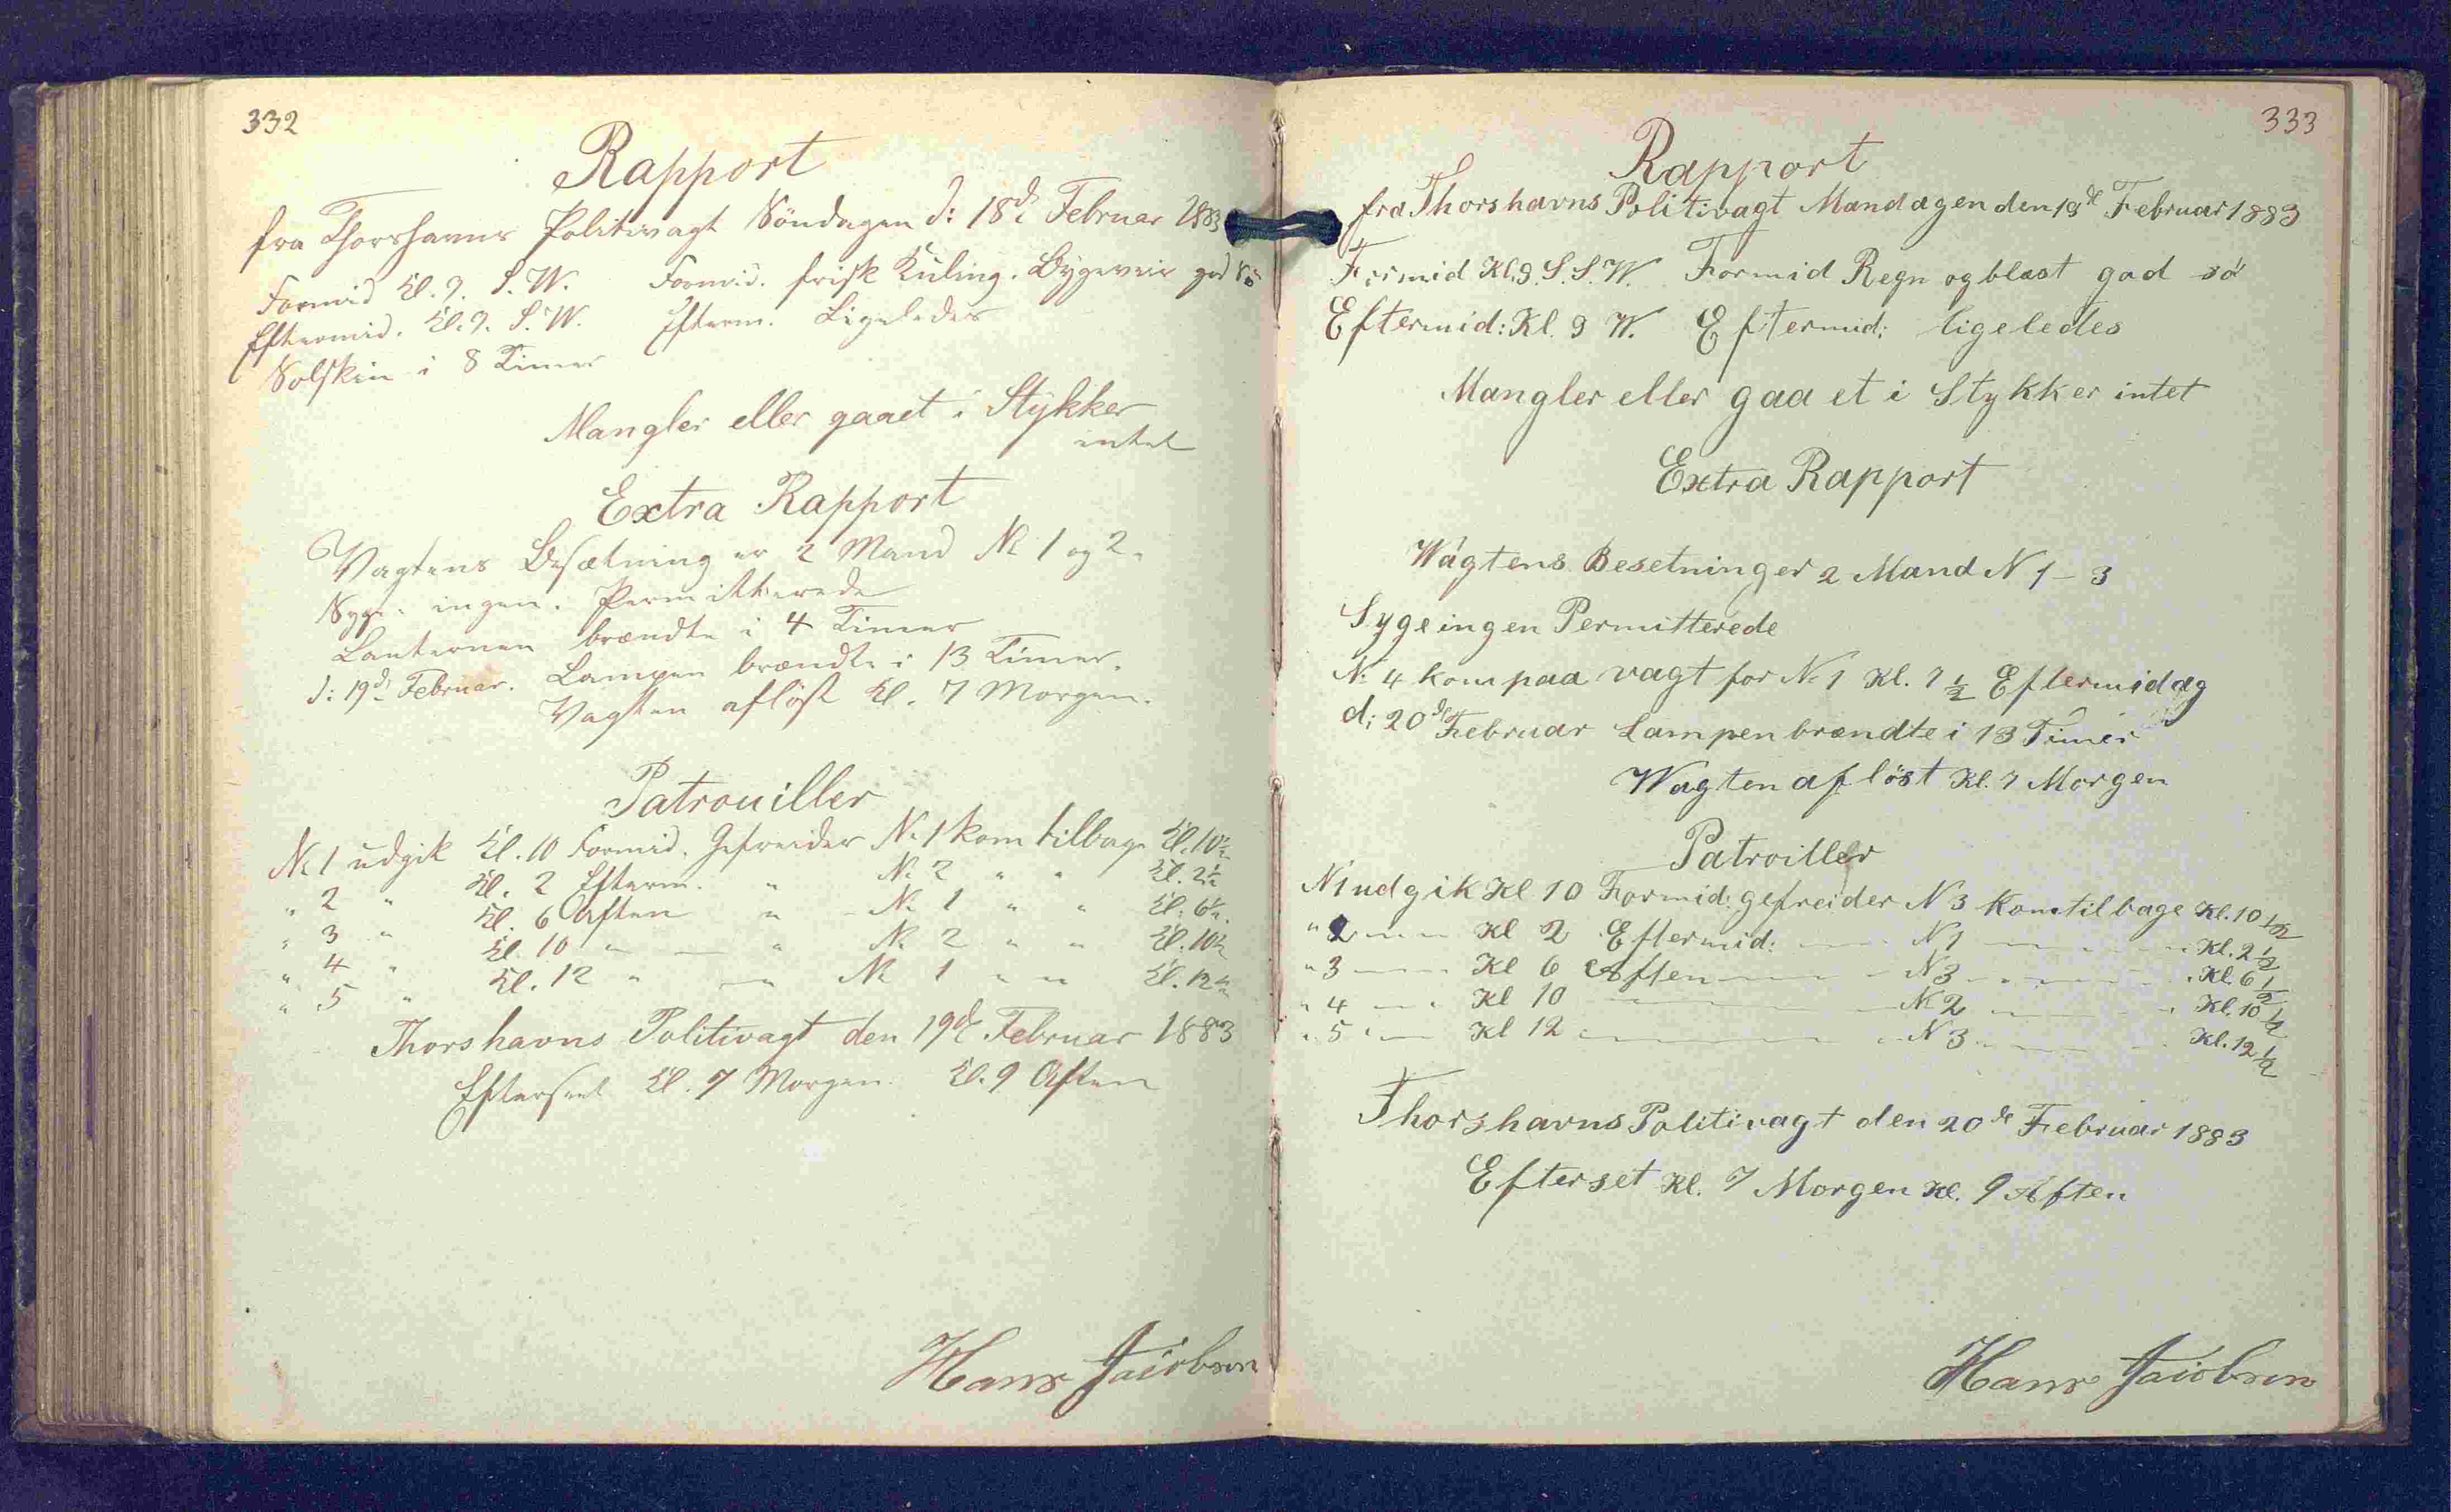 332
Rapport
fra Thorshavns Politivagt Söndagen d: 18de Februar 1883
Formid Kl. 9. S. W. Formid. frisk Kuling. Bygeveir god Sö
Eftermid. Kl. 9. S. W. Efterm. Ligeledes
Solskin i 8 Timer
Mangler eller gaaet i Stykker
intet
Extra Rapport
Vagtens Besætning er 2 Mand No 1 og 2.
Syge: ingen. Permitterede
Lanternen brændte i 4 Timer
d: 19de Februar. Lampen brændte i 13 Timer.
Vagten aflöst Kl. 7 Morgen.
Patrouiller
No 1 udgik Kl. 10 Formid. Gefreider No 1 kom tilbage Kl. 10½
" 2 " Kl. 2 Efterm. " No 2 " " Kl. 2½
" 3 " Kl. 6 Aften " - No 1 " " Kl. 6½.
" 4 " Kl. 10 " — " No 2 " " Kl. 10½
" 5 " Kl. 12 " — " No 1 " " Kl. 12½
Thorshavns Politivagt den 19de Februar 1883
Efterseet Kl. 7 Morgen. Kl. 9 Aften
Hans Jacobsen
333
Rapport
fra Thorshavns Politivagt Mandagen den 19de Februar 1883
Formid Kl. 9. S. S. W. Formid Regn og blæst god sö
Eftermid: Kl. 9 W. Eftermid: ligeledes
Mangler eller gaa et i Stykker intet
Extra Rapport
Wagtens Besetning er 2 Mand N 1 - 3
Syge ingen Permitterede
No 4 kom paa vagt for No 1 Kl. 7½ Eftermidag
d: 20de Februar Lampen brændte i 13 Timer
Wagten aflöst Kl. 7 Morgen
Patroiller
N 1 udgik Kl 10 Formid: gefreider N 3 Kom tilbage Kl. 10½
" 2 — " Kl 2 Eftermid: — N 1 — " Kl. 2½
" 3 — " Kl 6 Aften — " N 3 — " Kl. 6½
" 4 — " Kl 10 — No 2 — " Kl. 10½
" 5 " — Kl 12 — " N 3 — Kl. 12½
Thorshavns Politivagt den 20de Februar 1883
Efterset Kl. 7 Morgen Kl. 9 Aften
Hans Jacobsen